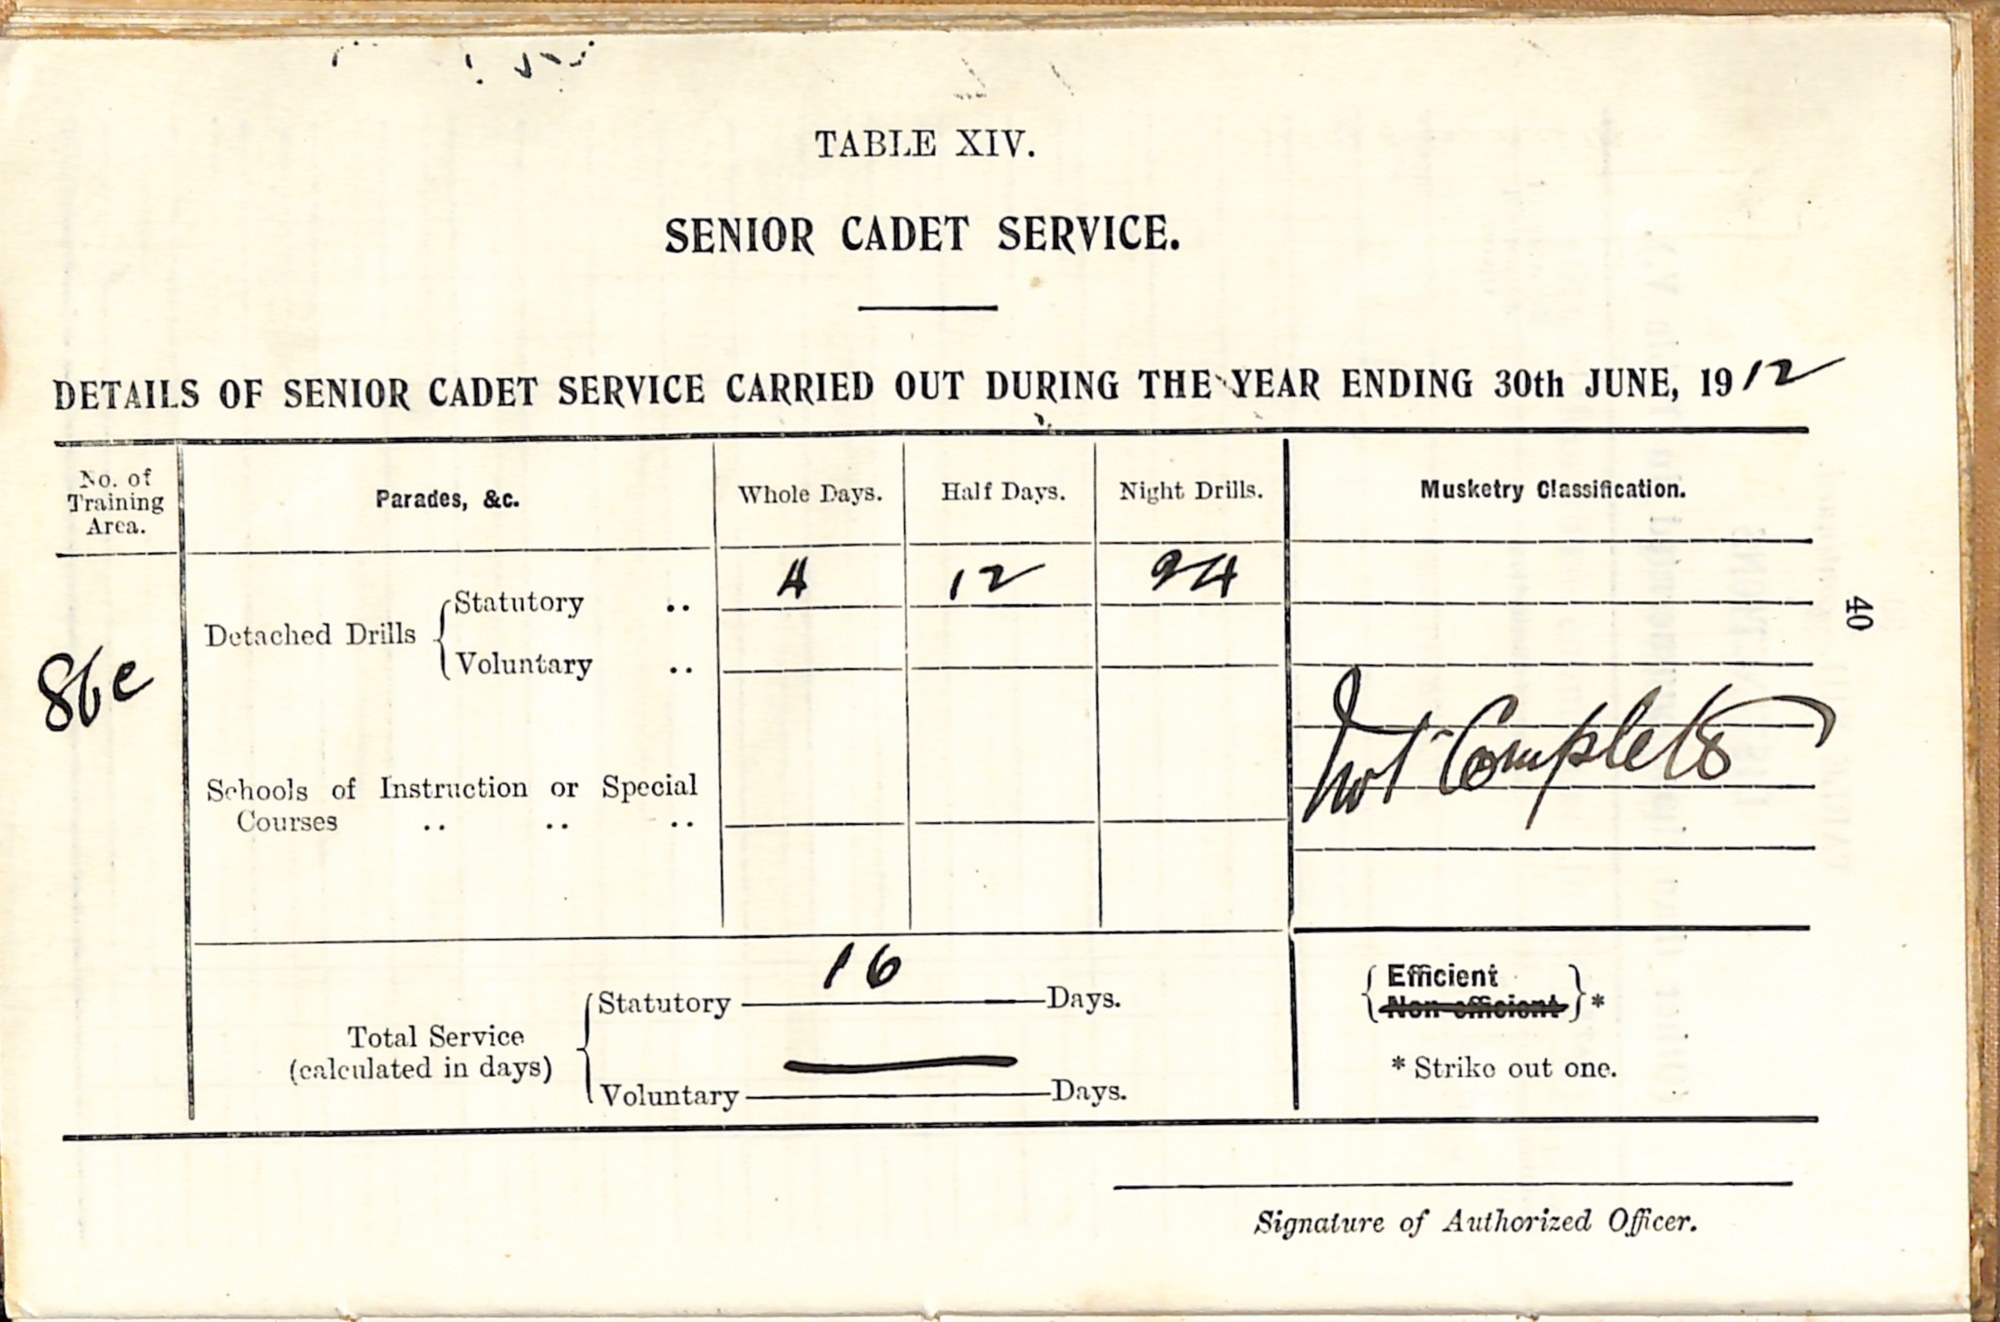 TABLE XIV.
SENIOR CADET SERVICE.
DETAILS OF SENIOR CADET SERVICE CARRIED OUT DURING THE YEAR ENDING 30th JUNE, 1912
No. of Training Area.
Parades, &c.
Whole Days.
Half Days.
Night Drills.
Musketry Classification.
86c
Detached Drills
Statutory ..
4
12
24
Voluntary ..
Schools of Instruction or Special
Courses .. .. ..
Not Complete
Total Service
(calculated in days)
Statutory 16 Days.
Voluntary — Days.
Efficient
Non-efficient *
* Strike out one.
Signature of Authorized Officer.
40